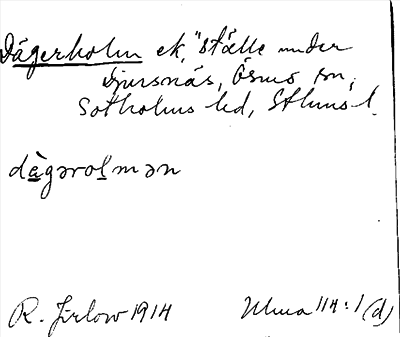 Dägerholm ek, "ställe under
Djursnäs, Ösmo sn,
Sotholms hd, Sthms l.
dàgərolmən
R. Jirlow 1914 Ulma 114:1 (d)